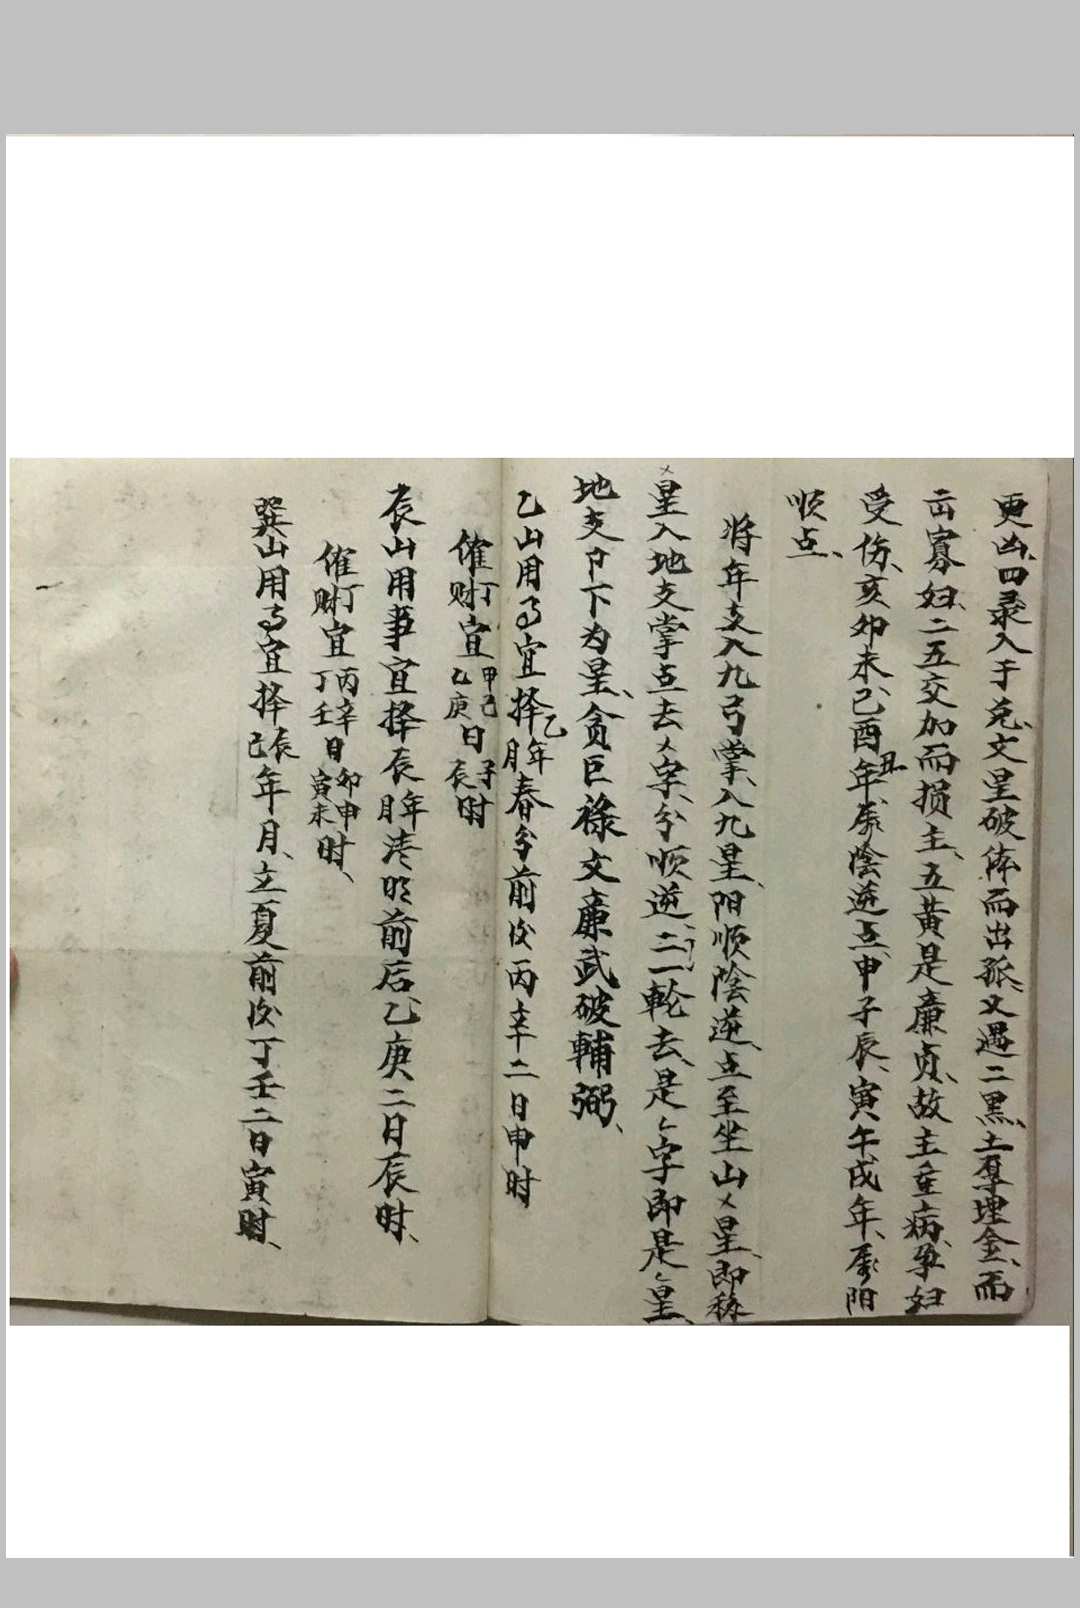 更凶、四录入于兑、文星破体而出孤、又遇二黑、土厚埋金、而
出寡妇、二五交加而损主、五黄是廉贞、故主重病、孕妇
受伤、亥卯未、巳酉丑年、属陰逆点、申子辰、寅午戌年、属阳
顺点、
将年支入九弓掌、入九星、阳顺陰逆、点至坐山乂星、即称
乂星入地支掌点去、乂字、分顺逆、二一轮去、是、字即是、星、
地支卩下为星、贪巨禄文廉武破輔弼、
乙山用事宜择乙年月春分前后丙辛二日申时
催丁财宜甲己乙庚日子辰时
辰山用事宜择辰年月清明前后乙庚二日辰时、
催丁财宜丙辛丁壬日卯申寅未时、
巽山用事宜择辰巳年月、立夏前后丁壬二日寅时、